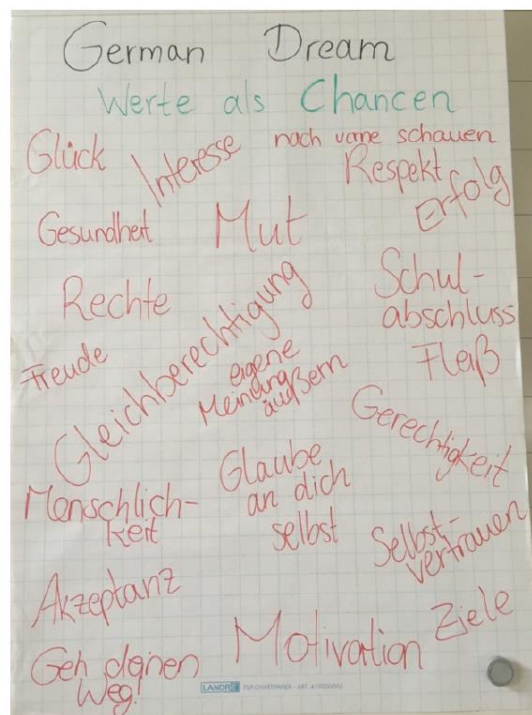 German Dream
Werte als Chancen
Glück
Interesse
nach vorne schauen
Respekt
Erfolg
Gesundheit
Mut
Rechte
Schul-
abschluss
Freude
Gleichberechtigung
eigene
Meinung
äußern
Fleiß
Gerechtigkeit
Menschlich-
keit
Glaube
an dich
selbst
Selbst-
vertrauen
Akzeptanz
Motivation
Ziele
Geh deinen
Weg!
LANDRÉ